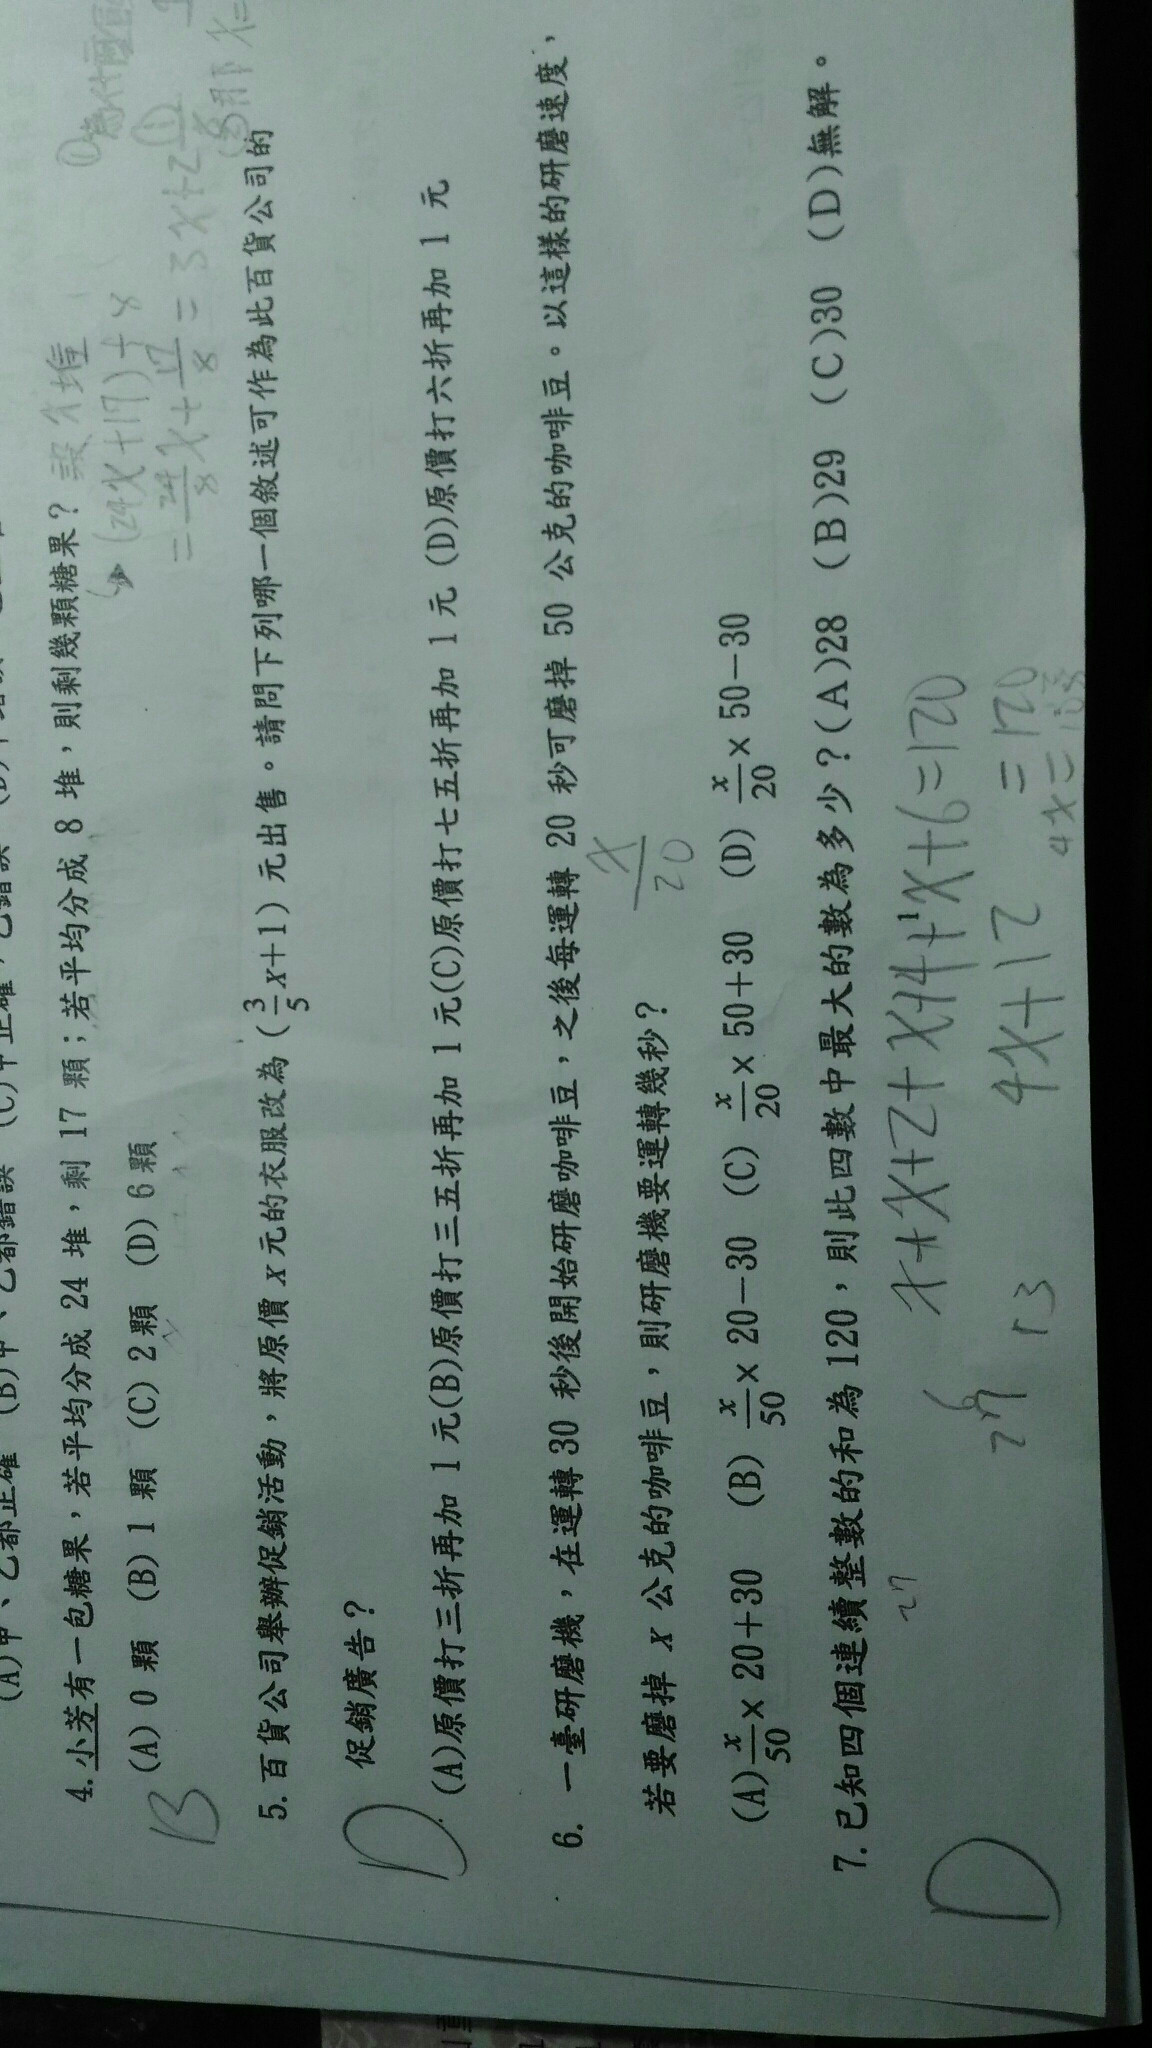 4. 小芳有一包糖果，若平均分成 24 堆，剩 17 顆；若平均分成 8 堆，則剩幾顆糖果？ 設 x 堆
(24x+17)÷8
(A) 0 顆 (B) 1 顆 (C) 2 顆 (D) 6 顆
= 24/8 x + 17/8 = 3x+2
B
5. 百貨公司舉辦促銷活動，將原價 x 元的衣服改為 (3/5 x+1) 元出售。請問下列哪一個敘述可作為此百貨公司的
促銷廣告？
D
(A)原價打三折再加 1 元(B)原價打三五折再加 1 元(C)原價打七五折再加 1 元 (D)原價打六折再加 1 元
6. 一臺研磨機，在運轉 30 秒後開始研磨咖啡豆，之後每運轉 20 秒可磨掉 50 公克的咖啡豆。以這樣的研磨速度，
x/20
若要磨掉 x 公克的咖啡豆，則研磨機要運轉幾秒？
(A) x/50 × 20+30 (B) x/50 × 20−30 (C) x/20 × 50+30 (D) x/20 × 50−30
7. 已知四個連續整數的和為 120，則此四數中最大的數為多少？(A)28 (B)29 (C)30 (D)無解。
27
x+x+2+x+4+x+6=120
4x+12 =120
4x=108
D